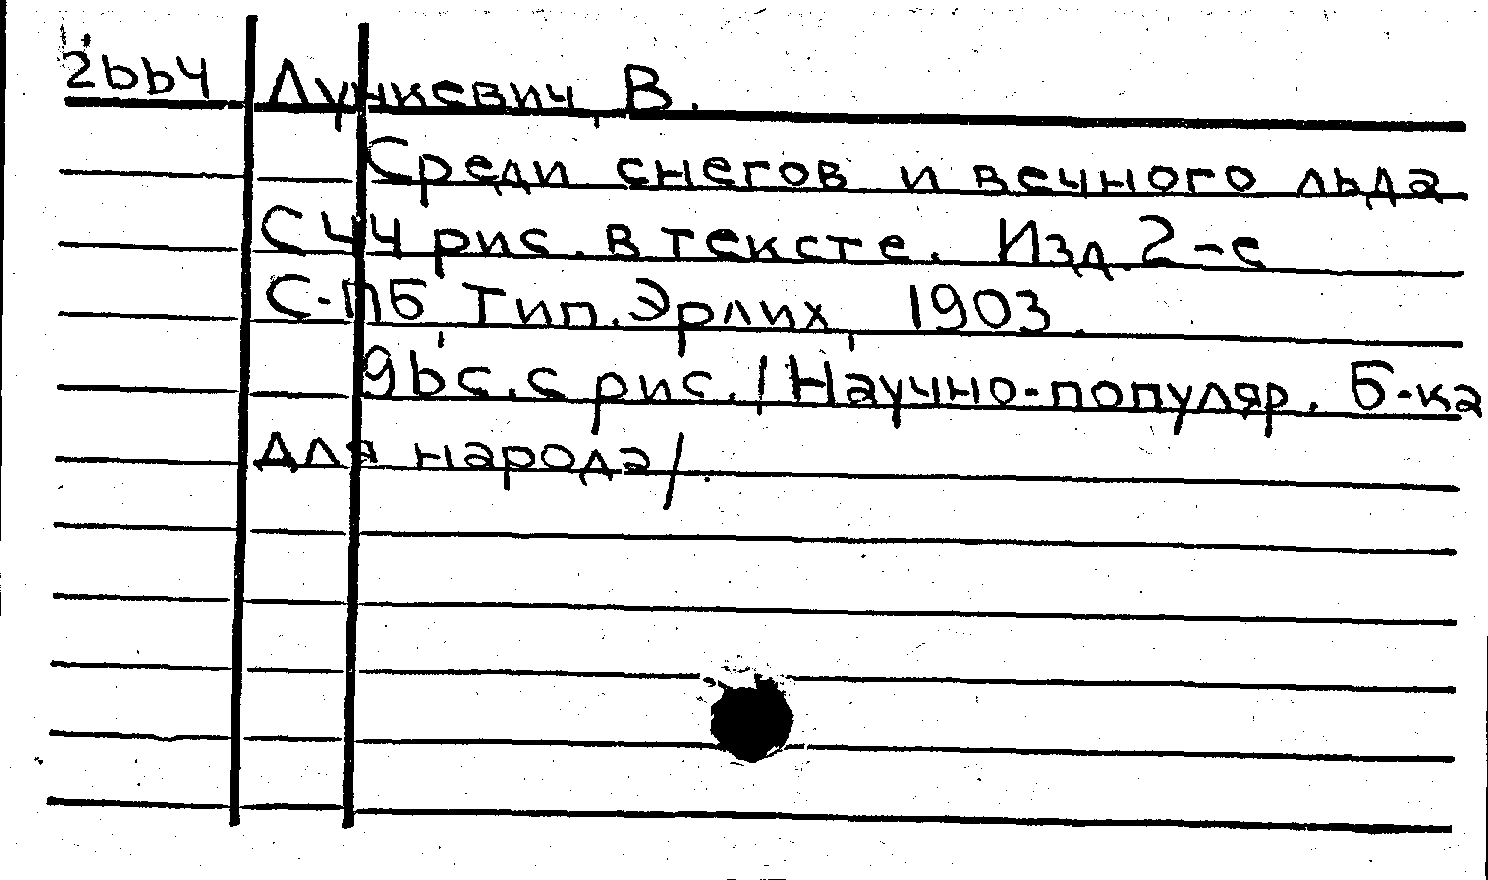 2664 Лункевич, В.
Среди снегов и вечного льда
С 44 рис. в тексте. Изд. 2-е
С-ПБ, Тип. Эрлих, 1903.
96 с. с рис. /Научно-популяр. Б-ка
для народа/.